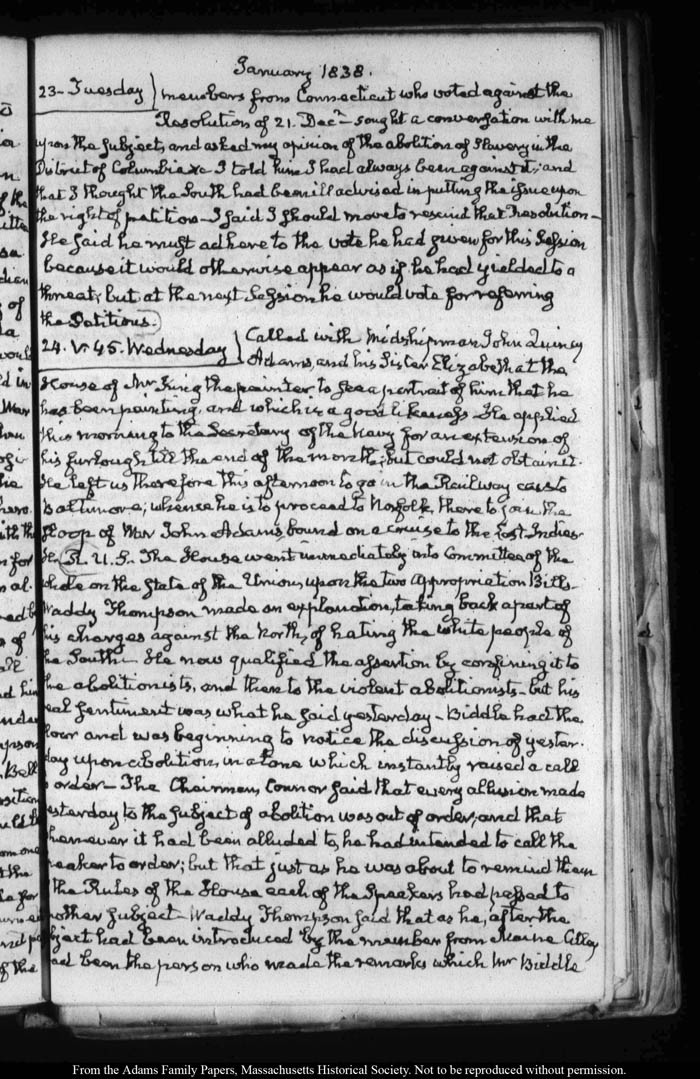 January 1838.
23- Tuesday) members from Connecticut who voted against the
Resolution of 21. Decr. sought a conversation with me
upon the subject, and asked my opinion of the abolition of Slavery in the
District of Columbia &c I told him I had always been against it; and
that I thought the South had been ill advised in putting the issue upon
the right of petition- I said I should move to rescind that resolution-
He said he must adhere to the vote he had given for this Session
because it would otherwise appear as if he had yielded to a
threat; but at the next Session he would vote for referring
the Petitions.
24. V. 45. Wednesday) Called with Midshipman John Quincy
Adams, and his Sister Elizabeth at the
House of Mr King the painter to see a portrait of him that he
has been painting, and which is a good likeness- He applied
this morning to the Secretary of the Navy for an extension of
his furlough till the end of the month; but could not obtain it.
He left us therefore this afternoon to go in the Railway cars to
Baltimore; whence he is to proceed to Norfolk there to join the
Sloop of War John Adams, bound on a cruise to the East Indies-
H. R. U. S. The House went immediately into Committee of the
whole on the State of the Union, upon the two Appropriation Bills-
Waddy Thompson made an explanation, taking back a part of
his charges against the North, of hating the white people of
the South- He now qualified the assertion by confining it to
the abolitionists, and then to the violent abolitionists- but his
real sentiment was what he said yesterday- Biddle had the
floor and was beginning to notice the discussion of yester-
day upon abolition, in a tone which instantly raised a call
to order- The Chairman, Connor said that every allusion made
yesterday to the subject of abolition was out of order, and that
whenever it had been alluded to, he had intended to call the
speaker to order; but that just as he was about to remind them
of the Rules of the House each of the Speakers had passed to
another subject- Waddy Thompson said that as he, after the
subject had been introduced by the member from Maine Cilley
had been the person who made the remarks which Mr Biddle
From the Adams Family Papers, Massachusetts Historical Society. Not to be reproduced without permission.